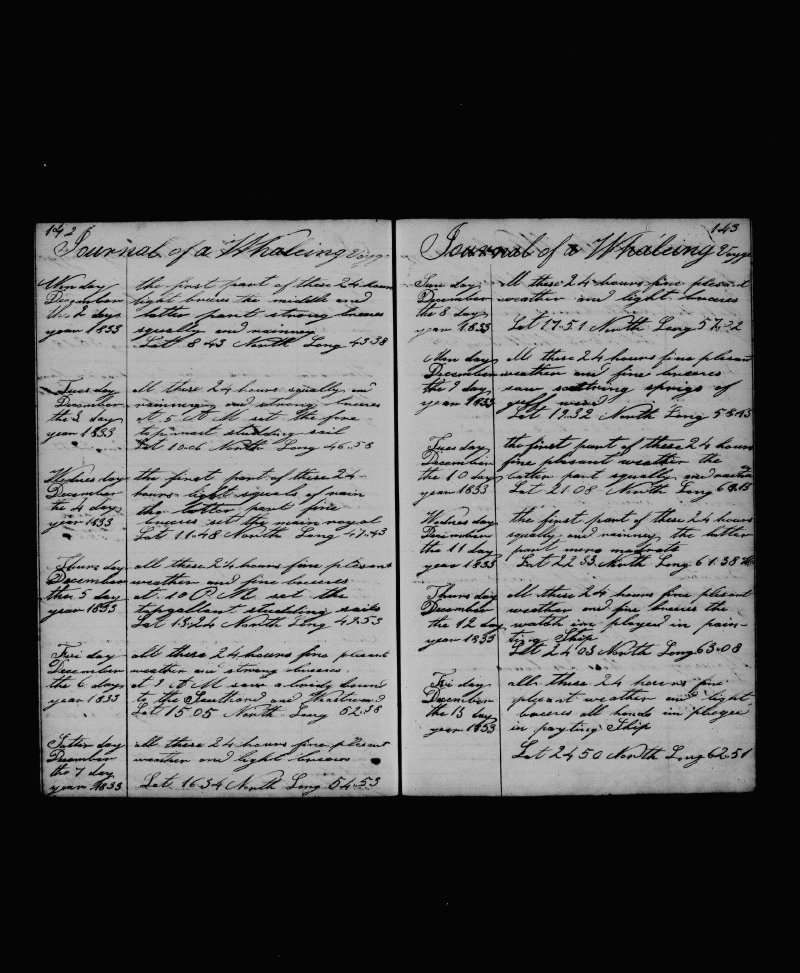 142
Journal of a Whaleing Voyge
Mon day the first part of these 24 hours
December light breeies the middle and
the 2 day latter part strong breeies
year 1833 squally and rainney
Lat 8 43 North Long 43 38
Tues day all these 24 hours squally and
December rainney and strong breeies
the 3 day At 5 A M set the fore
year 1833 topmast studding sail
Lat 10.06 North Long 46.58
Wednes day the first part of these 24
December hours light squals of rain
the 4 day the latter part fine
year 1833 breeies set the main royal
Lat 11.48 North Long 47.43
Thurs day all these 24 hours fine pleasant
December weather and fine breeies
the 5 day at 10 P M set the
year 1833 topgallant studding sails
Lat 13.24 North Long 49.53
Fri day all these 24 hours fine pleasant
December weather and strong breeies
the 6 day at 2 A M saw a bound
year 1833 to the Southard and Weastward
Lat 15 05 North Long 52.38
Satter day all these 24 hours fine plesant
December weather and light breeies
the 7 day
year 1833 Lat 16 34 North Long 54.53
143
Journal of a Whaleing Voyge
Sun day All these 24 hours fine plesant
December weather and light breeies
the 8 day
year 1833 Lat 17.51 North Long 57.22
Mon day All these 24 hours fine plesant
December weather and fine breeies
the 9 day saw some sprigs of
year 1833 gulf weed
Lat 19.32 North Long 58.45
Tues day the first part of these 24 hours
December fine pleasant weather the
the 10 day latter part squally and rainney
year 1833 Lat 21 08 North Long 60.15
Wednes day the first part of these 24 hours
December squally and rainney the latter
the 11 day part more madrate
year 1833 Lat 22 53 North Long 61.38
Thurs day All these 24 hours fine plesant
December weather and fine breeies the
the 12 day watch imployed in pain-
year 1833 ting Ship
Lat 24 03 North Long 63.08
Fri day all these 24 hours fine
December plesant weather and light
the 13 day breeies all hands imployed
year 1833 in paynting Ship
Lat 24 50 North Long 62.51